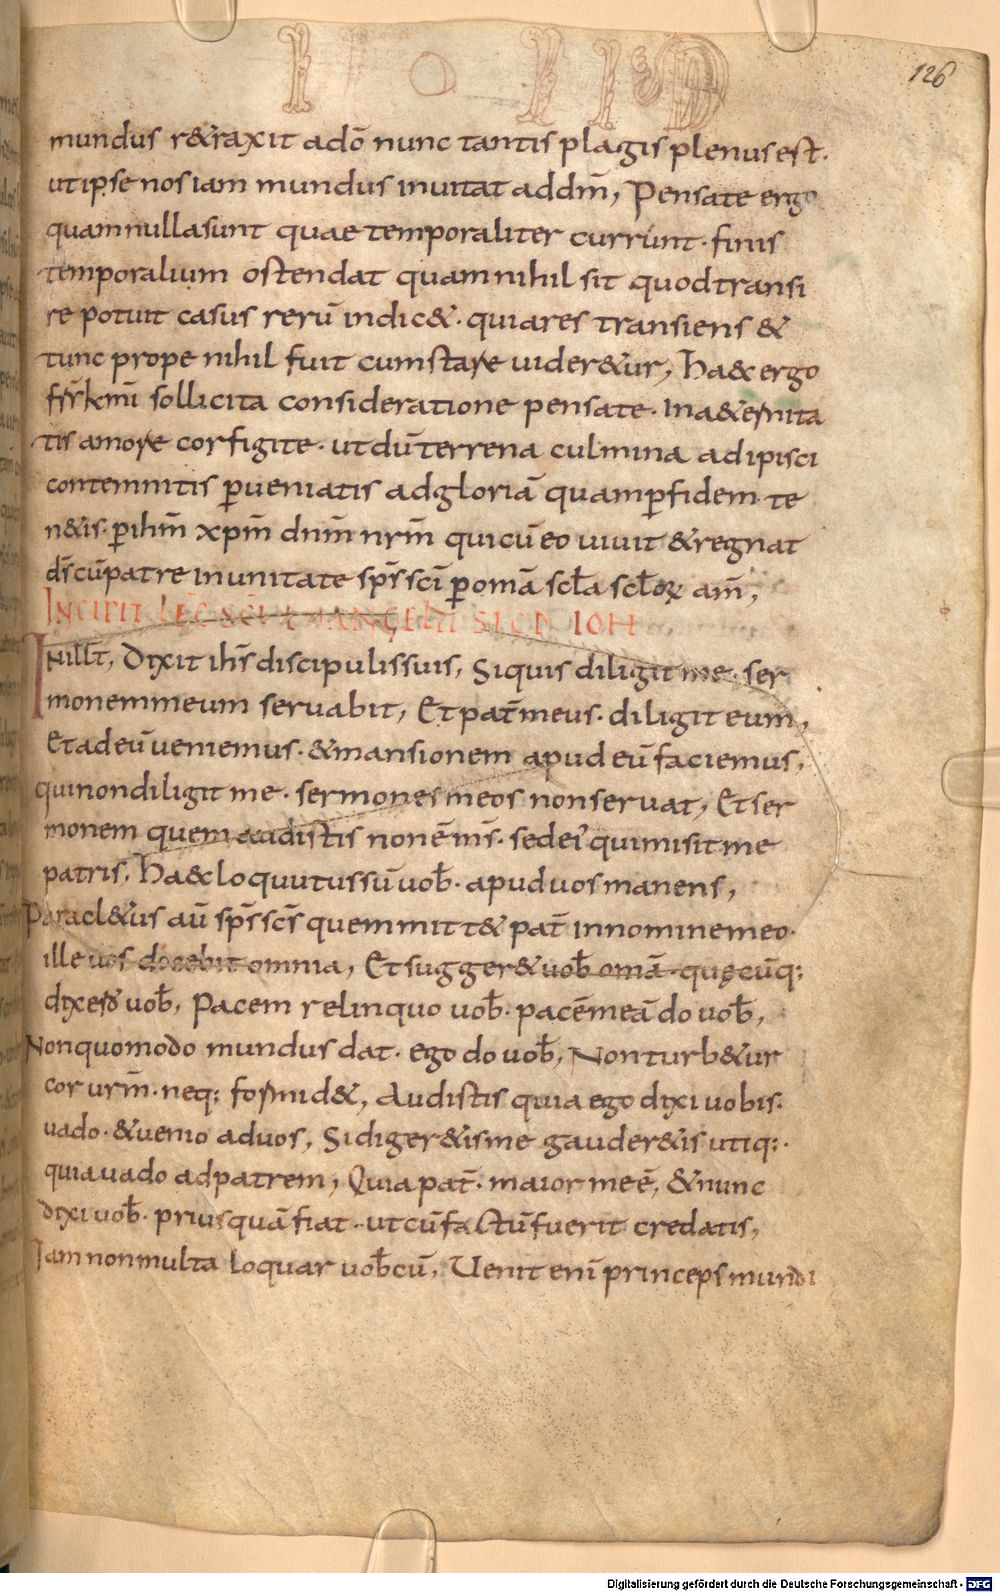 126
mundus r&raxit adō nunc tantis plagis plenus est.
ut ipse nos iam mundus inuitat addm̄, Pensate ergo
quam nulla sunt quae temporaliter currunt. finis
temporalium ostendat quam nihil sit quod transi
re potuit casus rerū indic&. quia res transiens &
tunc prope nihil fuit cum stare uider&ur, Haec ergo
fr̄s km̄i sollicita consideratione pensate. In a&ernita
tis amore corfigite. ut dū terrena culmina adipisci
contemnitis p̄ueniatis ad gloriā quam p̄ fidem te
n&is. p̄ ihm̄ xpm̄ dnm̄ nrm̄ qui cū eo uiuit & regnat
ds̄ cū patre in unitate sps̄ sci p̄ omā scła scłorꝝ am̄,
INCIPIT LEC SCI EUANGELII SECD IOH
IN illt̄, Dixit ihs̄ discipulis suis, Si quis diligit me. ser
monem meum seruabit, Et pat̄ meus. diligit eum,
Et ad eū ueniemus. & mansionem apud eū faciemus,
qui non diligit me. sermones meos non seruat, Et ser
monem quem audistis non ē ms̄. sed ei᷒ qui misit me
patris, Haec loquutus sū uob̄. apud uos manens,
Paracl&us aū sps̄ scs̄ quem mitt& pat̄ in nomine meo.
ille uos docebit omnia, Et sugger& uob̄ omā quęcūq;
dixero uob̄, Pacem relinquo uob̄. pacē meā do uob̄,
Non quomodo mundus dat. ego do uob̄, Non turb&ur
cor urm̄. neq; formid&, Audistis quia ego dixi uobis.
uado. & uenio ad uos, Si diger&is me gauder&is utiq;.
quia uado ad patrem, Quia pat̄. maior me ē, & nunc
dixi uob̄. prius quā fiat. ut cū factū fuerit credatis,
Iam non multa loquar uob̄cū, Uenit enī princeps mundi
Digitalisierung gefördert durch die Deutsche Forschungsgemeinschaft - DFG